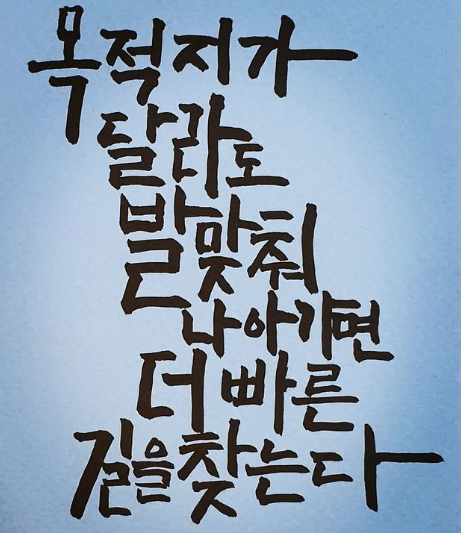 목적지가
달라도
발맞춰
나아가면
더 빠른
길을 찾는다